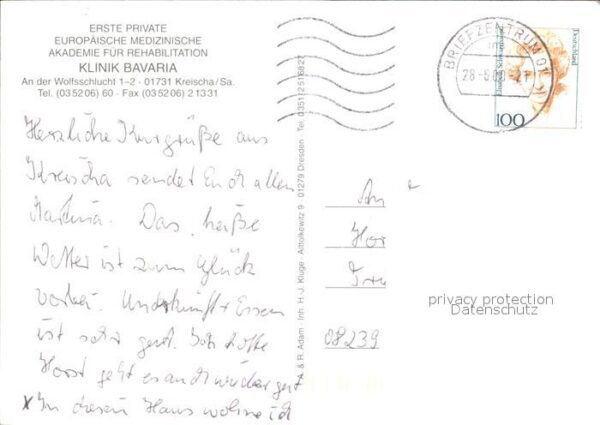 ERSTE PRIVATE
EUROPÄISCHE MEDIZINISCHE
AKADEMIE FÜR REHABILITATION
KLINIK BAVARIA
An der Wolfsschlucht 1–2 · 01731 Kreischa/Sa.
Tel. (035206) 60 · Fax (035206) 21331
Herzliche Kurgrüße aus
Kreischa sendet Euch allen
Martina. Das heiße
Wetter ist zum Glück
vorbei. Unterkunft + Essen
ist sehr gut. Ich hoffe
Horst geht es auch wieder gut
x In diesem Haus wohne ich
A. & R. Adam · Inh. H.-J. Kluge · Alttolkewitz 9 · 01279 Dresden · Tel.
BRIEFZENTRUM 01
-21
Deutschland
100
An
Hor
08239
privacy protection
Datenschutz